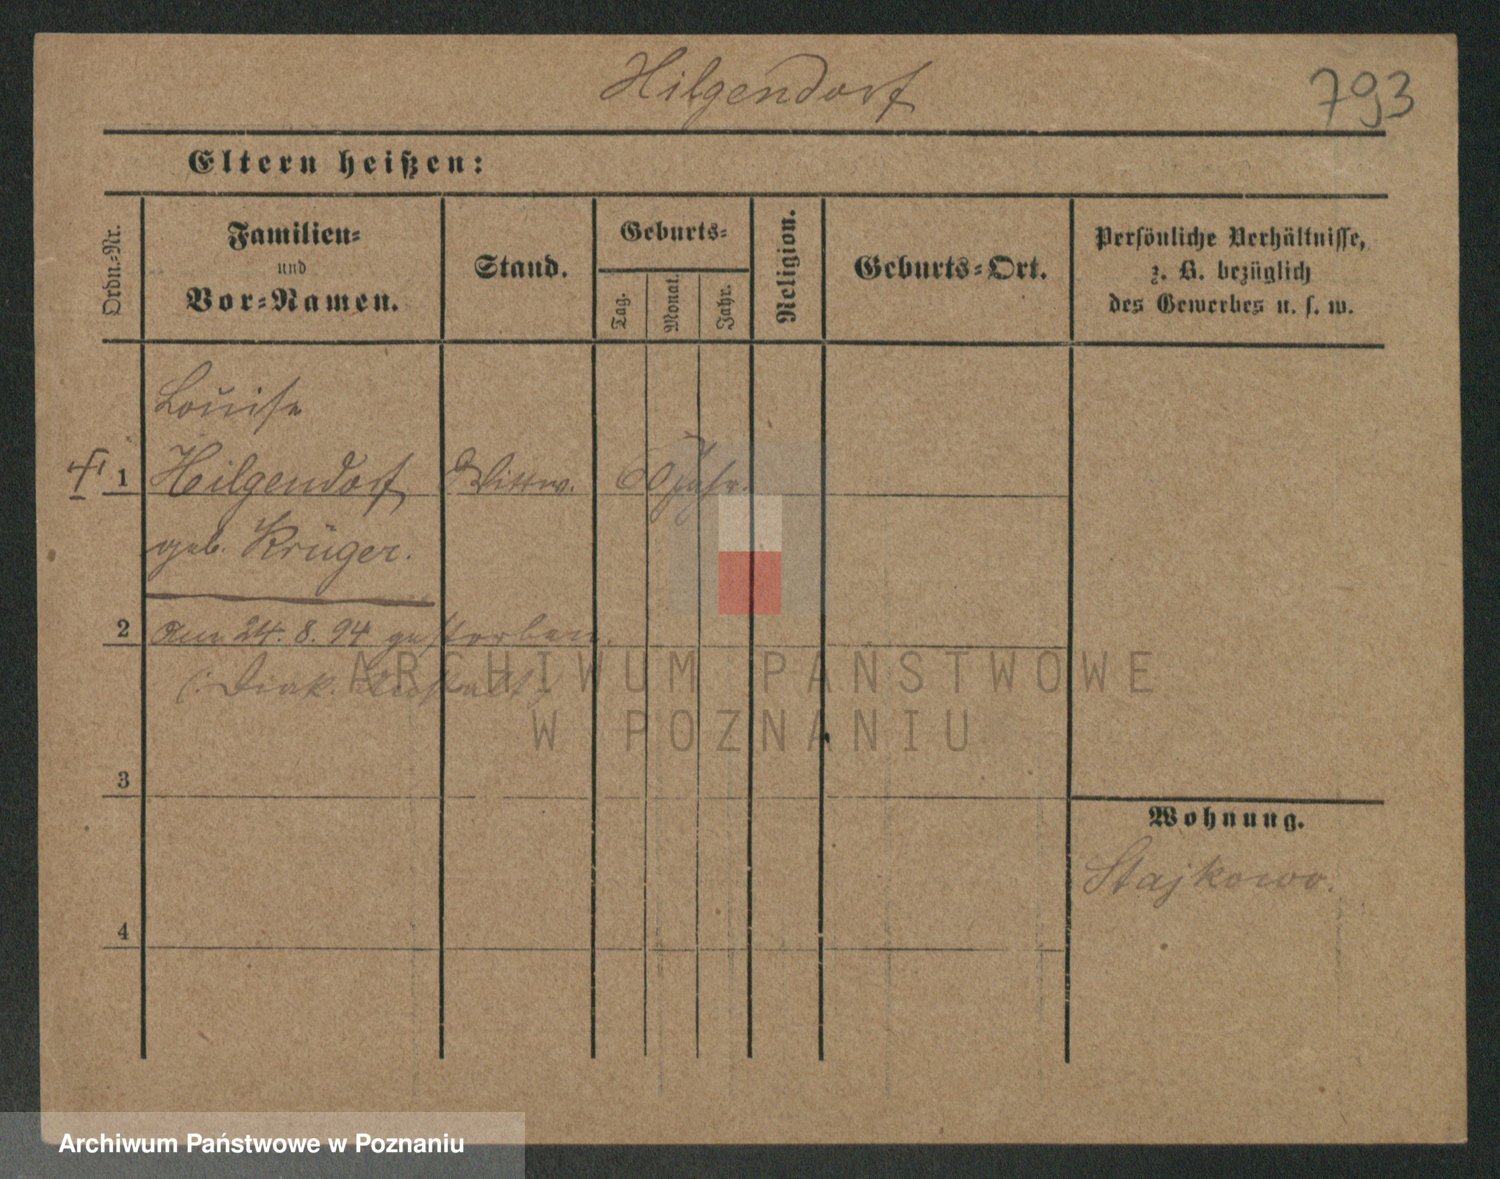 Hilgendorf
793
Eltern heißen:
Ordn.-Nr.
Familien-
und
Vor-Namen.
Stand.
Geburts-
Tag.
Monat.
Jahr.
Religion.
Geburts-Ort.
Persönliche Verhältnisse,
z. B. bezüglich
des Gewerbes u. s. w.
Louise
1 Hilgendorf Wittw. 60 Jahr.
geb. Krüger.
2 Am 24. 8. 94 gestorben.
(: Diak. Anstalt)
ARCHIWUM PAŃSTWOWE
W POZNANIU
3
Wohnung.
Stajkowo.
4
Archiwum Państwowe w Poznaniu